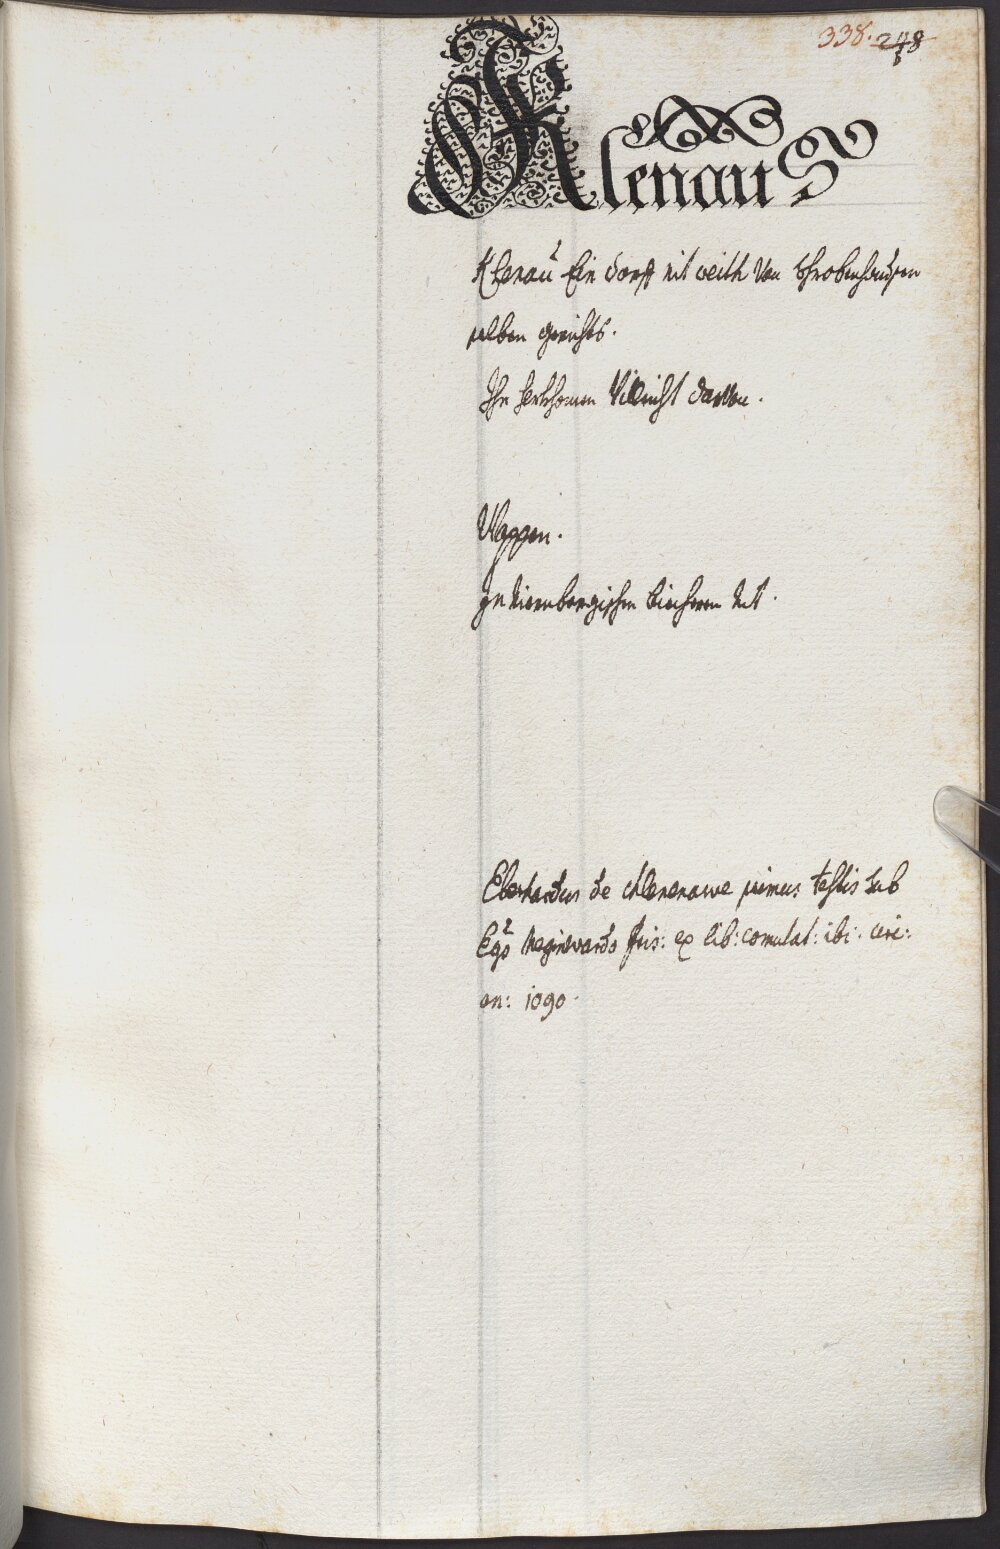 338. 248
Klenau
Klenau Ein dorff nit weith von Schrobenhausen
selben gerichts.
Ihr herkhomen Villeicht daselbn.
Wappen.
In Niernbergischen biechern nit.
Eberhardus de chlenenawe primus testis sub
Ego Meginwardo fris: ex lib: comutat: ibi:
an: 1090.